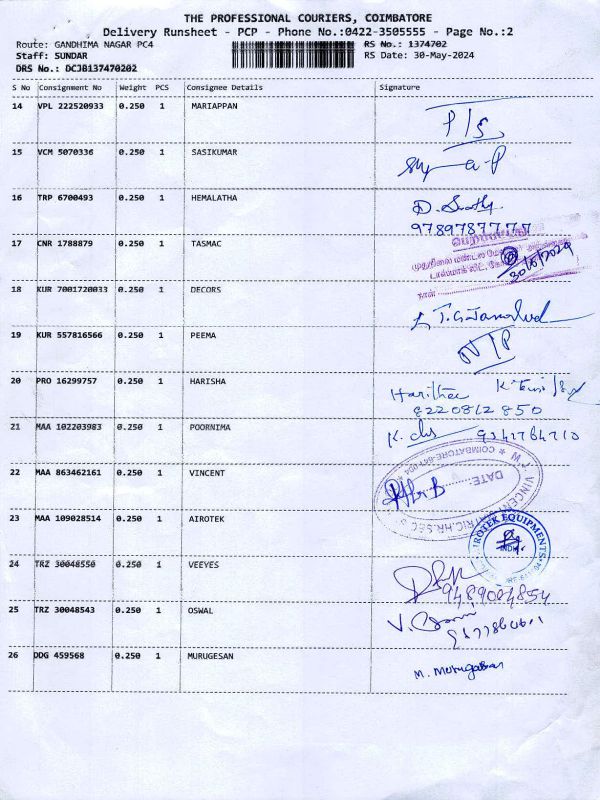 THE PROFESSIONAL COURIERS, COIMBATORE
Delivery Runsheet - PCP - Phone No.:0422-3505555 - Page No.:2
Route: GANDHIMA NAGAR PC4 RS No.: 1374702
Staff: SUNDAR RS Date: 30-May-2024
DRS No.: DCJB137470202
S No Consignment No Weight PCS Consignee Details Signature
14 VPL 222520933 0.250 1 MARIAPPAN P/S
15 VCM 5070336 0.250 1 SASIKUMAR
16 TRP 6700493 0.250 1 HEMALATHA
9789787777
17 CNR 1788879 0.250 1 TASMAC
30/5/2024
நாள்
18 KUR 7001720033 0.250 1 DECORS
19 KUR 557816566 0.250 1 PEEMA N/P
20 PRO 16299757 0.250 1 HARISHA
8220812850
21 MAA 102203983 0.250 1 POORNIMA
22 MAA 863462161 0.250 1 VINCENT
COIMBATORE-641 004
DATE:
23 MAA 109028514 0.250 1 AIROTEK
IROTEK EQUIPMENTS
24 TRZ 30048550 0.250 1 VEEYES
9489004854
25 TRZ 30048543 0.250 1 OSWAL
26 DDG 459568 0.250 1 MURUGESAN M. Murugesan